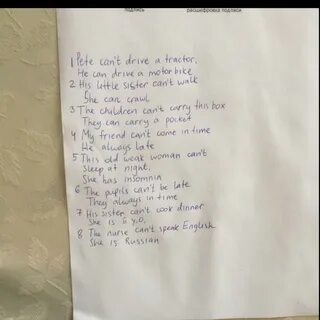 подпись расшифровка подписи
1 Pete can't drive a tractor.
He can drive a motorbike
2 His little sister can't walk
She can crawl
3 The children can't carry this box
They can carry a pocket
4 My friend can't come in time
He always late
5 This old weak woman can't
sleep at night.
She has insomnia
6 The pupils can't be late
They always in time
7 His sister can't cook dinner.
She is 5 y.o.
8 The nurse can't speak English
She is Russian